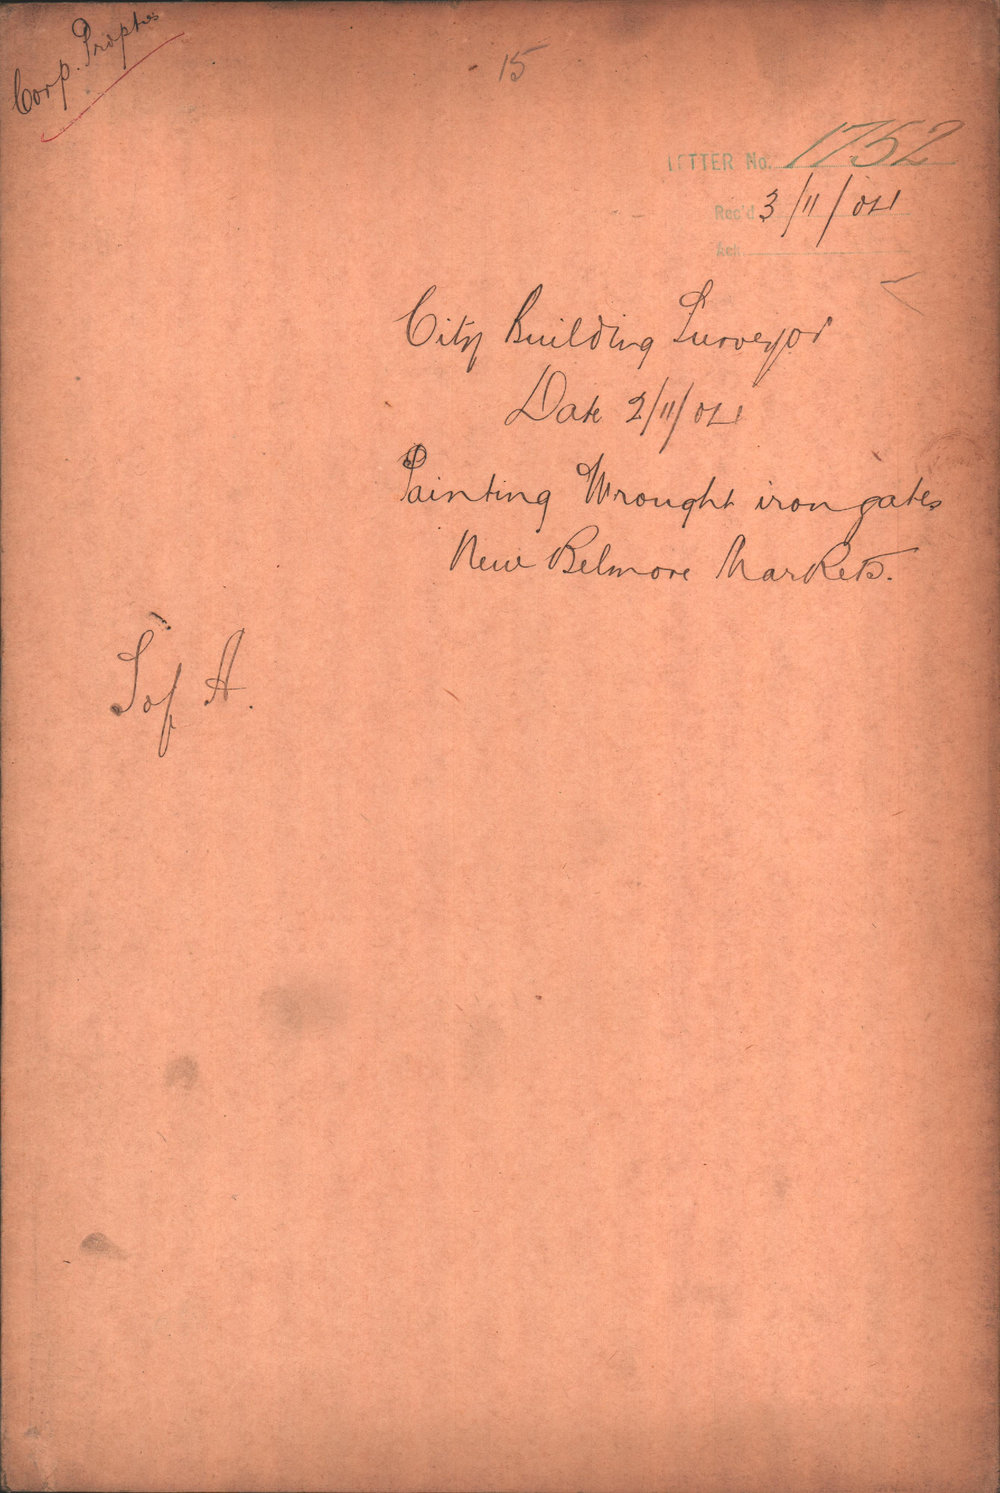 Corp. Propties
15
LETTER No. 1752
Rec'd 3/11/04
Ack.
City Building Surveyor
Date 2/11/04
Painting Wrought iron gates
New Belmore Markets.
S of A.